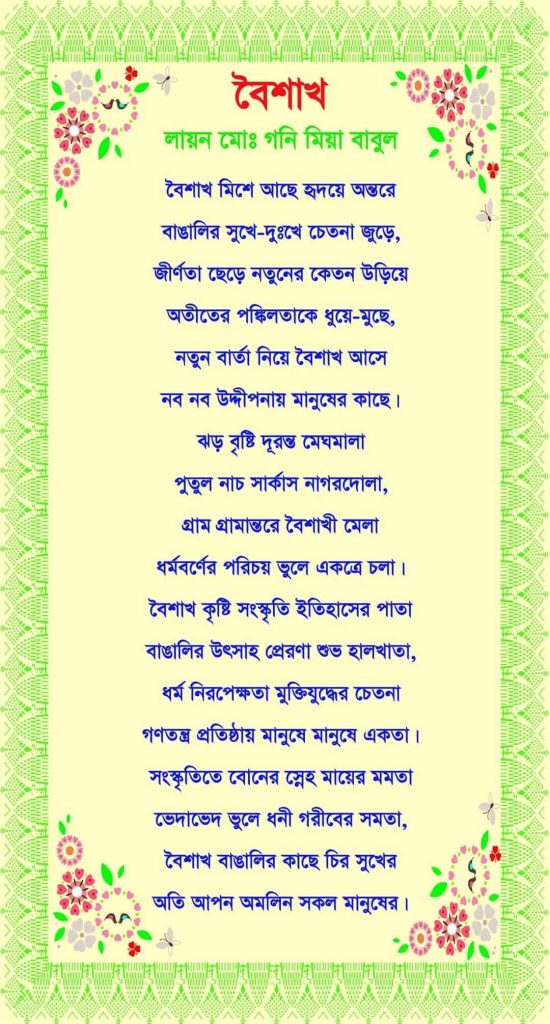 বৈশাখ
লায়ন মোঃ গনি মিয়া বাবুল
বৈশাখ মিশে আছে হৃদয়ে অন্তরে
বাঙালির সুখে-দুঃখে চেতনা জুড়ে,
জীর্ণতা ছেড়ে নতুনের কেতন উড়িয়ে
অতীতের পঙ্কিলতাকে ধুয়ে-মুছে,
নতুন বার্তা নিয়ে বৈশাখ আসে
নব নব উদ্দীপনায় মানুষের কাছে।
ঝড় বৃষ্টি দূরন্ত মেঘমালা
পুতুল নাচ সার্কাস নাগরদোলা,
গ্রাম গ্রামান্তরে বৈশাখী মেলা
ধর্মবর্ণের পরিচয় ভুলে একত্রে চলা।
বৈশাখ কৃষ্টি সংস্কৃতি ইতিহাসের পাতা
বাঙালির উৎসাহ প্রেরণা শুভ হালখাতা,
ধর্ম নিরপেক্ষতা মুক্তিযুদ্ধের চেতনা
গণতন্ত্র প্রতিষ্ঠায় মানুষে মানুষে একতা।
সংস্কৃতিতে বোনের স্নেহ মায়ের মমতা
ভেদাভেদ ভুলে ধনী গরীবের সমতা,
বৈশাখ বাঙালির কাছে চির সুখের
অতি আপন অমলিন সকল মানুষের।